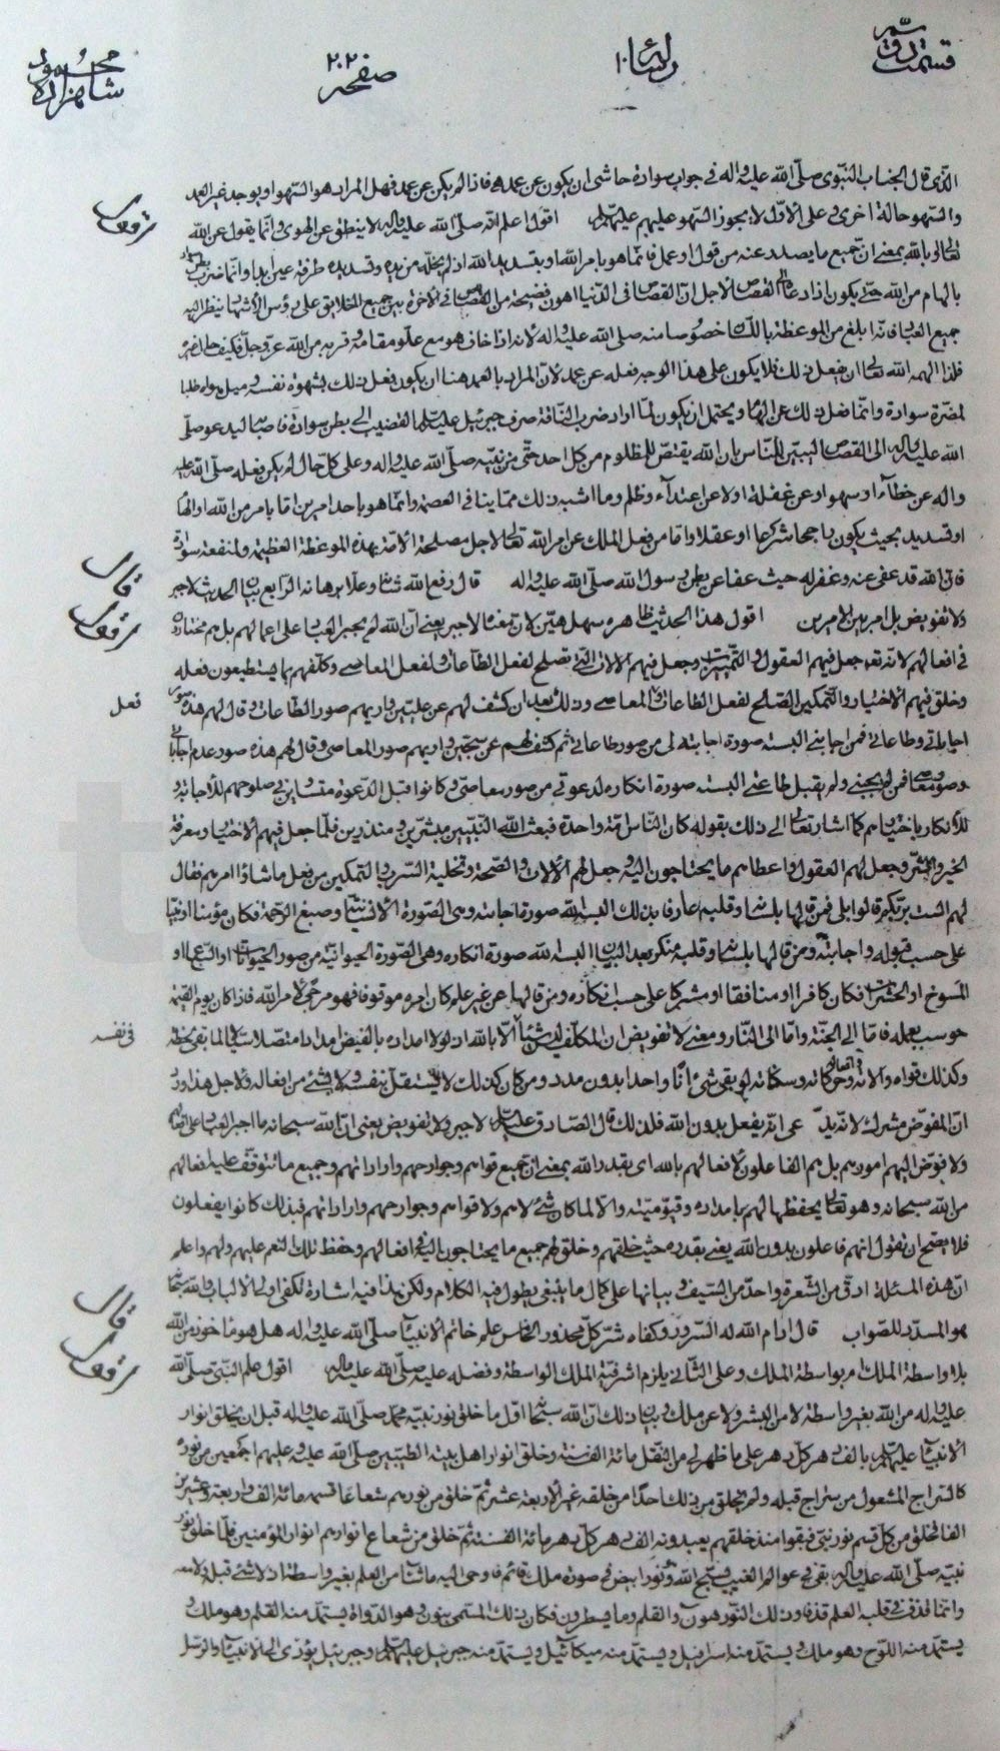 قسمت دوم
رساله ۱۰
صفحه ۲۰۲
محمود شاهزاده
الذی قال الجناب النبوی صلّی الله علیه واله فی جواب سوادة حاشی ان یکون عن عمد فاذا لم یکن عن عمد فهل المراد هو السّهو او یوجد غیر العمد
والسّهو حالة اخری وعلی الاوّل لا یجوز السّهو علیهم علیهم السلم اقول اعلم انّه صلّی الله علیه واله لا ینطق عن الهوی وانّما یقول عن الله
تعالی بالله بمعنی انّ جمیع ما یصدر عنه من قول او عمل فانّما هو بامر الله او بتسدید الله اذ لم یخلّه من یده وتسدیده طرفة عین ابدا وانّما ضرب بطن سوادة
بالهام من الله حتّی یکون اذا دعا الی القصاص لاجل انّ القصاص فی الدّنیا اهون فضیحة من القصاص فی الاخرة بین جمیع الخلایق علی رؤس الاشهاد ینظر الیه
جمیع العباد فانّه ابلغ من الموعظة بذلک خصوصا منه صلی الله علیه واله لانه اذا خاف هو مع علو مقامه وقربه من الله عزّ وجلّ فکیف حال غیره
فلذا الهمه الله تعالی ان یفعل ذلک فلا یکون علی هذا الوجه فعله عن عمد لانّ المراد بالعمد هنا ان یکون فعل ذلک بشهوة نفسه ومیل هواه طلبا
لمضرّة سوادة وانّما فعل ذلک عن الهام ویحتمل ان یکون لمّا اراد ضرب النّاقة صرف جبرئیل علیه السلم القضیب الی بطن سوادة فاصابه لیدعو صلّی
الله علیه واله الی القصاص لیبیّن للنّاس بان الله یقتصّ للمظلوم من کل احد حتّی من نبیّه صلّی الله علیه واله وعلی کلّ حال لم یکن فعله صلّی الله علیه
واله عن خطأء او سهو او عن غفلة اولا عن اعتدآء وظلم وما اشبه ذلک ممّا ینافی العصمة وانّما هو باحد امرین امّا بامر من الله او الهام
او تسدید بحیث یکون راجحا شرعا او عقلا وامّا من فعل الملک عن امر الله تعالی لاجل مصلحة الامّة بهذه الموعظة العظیمة ولمنفعة سوادة
فانّ الله قد عفی عنه وغفر له حیث عفا عن بطن رسول الله صلّی الله علیه واله قال رفع الله شانه وعلا برهانه الرّابع بیان الحدیث لا جبر
ولا تفویض بل امر بین الامرین اقول هذا الحدیث ظاهره سهل هیّن لانّ معنی لا جبر یعنی انّ الله لم یجبر العباد علی اعمالهم بل هم مختارون
فی افعالهم لانّه تعالی جعل فیهم العقول والتّمییز وجعل فیهم الالات الّتی تصلح لفعل الطّاعات ولفعل المعاصی وکلّفهم بما یستطیعون فعله
وخلق فیهم الاختیار والتّمکین الصّالح لفعل الطّاعات والمعاصی وذلک بعد ان کشف لهم عن علیّین واریهم صور الطّاعات وقال لهم هذه صور
اجابتی وطاعاتی فمن اجابنی البسته صورة اجابته لی من صور طاعاتی ثم کشف لهم عن سجّین واریهم صور المعاصی وقال لهم هذه صور عدم اجابتی
وصور معاصی فمن لم یجبنی ولم یقبل طاعتی البسته صورة انکاره لدعوتی من صور معاصیّ وکانوا قبل الدّعوة متساوین فی صلوحهم للاجابة و
للانکار باختیارهم کما اشار تعالی الی ذلک بقوله کان النّاس امّة واحدة فبعث الله النّبیّین مبشّرین ومنذرین فلمّا جعل فیهم الاختیار ومعرفة
الخیر والشّر وجعل لهم العقول واعطاهم ما یحتاجون الیه وجعل لهم الالات والصّحة وتخلیة السّرب والتمکین من فعل ما شاؤا امرهم فقال
لهم الست بربّکم قالوا بلی فمن قالها بلسانه وقلبه عارفا بذلک البسه الله صورة اجابته وهی الصّورة الانسانیّة وصبغ الرّحمة فکان مؤمنا او نبیّا
علی حسب قبوله واجابته ومن قالها بلسانه وقلبه منکر بعد البیان البسه الله صورة انکاره وهی الصّورة الحیوانیّة من صور الحیوانات او السّباع او
المسوخ او الحشرات فکان کافرا او منافقا او مشرکا علی حسب انکاره ومن قالها عن غیر علم کان امره موقوفا فهو مرجی لامر الله فاذا کان یوم القیمة
حوسب بعمله فامّا الی الجنّة وامّا الی النّار ومعنی لا تفویض ان المکلّف لیس شیئاً الّا بالله اذ لولا امداده بالفیض مدادا متّصلا سیّالا لما بقی لحظة
وکذلک قواه والاته وافعاله وحرکاته وسکناته لم یبق شئ انّا واحدا بدون مدد ومن کان کذلک لا یستقلّ بنفسه ولا بشئ من افعاله ولاجل هذا ورد
انّ المفوّض مشرک لانّه یدّعی انّه یفعل بدون الله فلذلک قال الصّادق علیه السلم لا جبر ولا تفویض یعنی انّ الله سبحانه ما اجبر العباد علی افعالهم
ولا فوّض الیهم امورهم بل هم الفاعلون لافعالهم بالله ای بقدر الله بمعنی انّ جمیع قواهم وجوارحهم واراداتهم وجمیع ما تتوقّف علیه افعالهم
من الله سبحانه وهو تعالی یحفظها لهم بامداده وقیّومیّته والا لما کان شئ لا هم ولا قواهم وجوارحهم واراداتهم فبذلک کانوا یفعلون
فلا یصحّ ان نقول انهم فاعلون بدون الله یعنی بقدره حیث خلقهم وخلق لهم جمیع ما یحتاجون الیه فی افعالهم وحفظ تلک النعم علیهم ولهم واعلم
انّ هذه المسئلة ادقّ من الشّعرة واحدّ من السّیف وبیانها علی کمال ما ینبغی یطول فیه الکلام ولکن هذا فیه اشارة لکفی اولی الالباب والله سبحانه
هو المسدّد للصّواب قال ادام الله له السّرور وکفاه شرّ کلّ محذور الخامس علم خاتم الانبیاء صلّی الله علیه واله هل هو ماخوذ من الله
بلا واسطة الملک ام بواسطة الملک وعلی الثّانی یلزم اشرفیّة الملک الواسطة وفضله علیه صلّی الله علیه واله اقول علم النّبیّ صلّی الله
علیه واله من الله بغیر واسطة لا من البشر ولا عن ملک وبیان ذلک انّ الله سبحانه اوّل ما خلق نور نبیّه محمّد صلّی الله علیه واله قبل ان یخلق انوار
الانبیاء علیهم السلم بالف دهر کلّ دهر علی ما ظهر لی من النّقل مائة الف سنة وخلق انوار اهل بیته الطیّبین صلّی الله علیه وعلیهم اجمعین من نوره
کالسّراج المشعول من سراج قبله ولم یخلق من ذلک احدا من خلقه غیر الاربعة عشر ثمّ خلق من نورهم شعاعا قسمه مائة الف واربعة وعشرین
الفا فخلق من کلّ قسم نور نبیّ فبقوا منذ خلقهم یعبدونه الف دهر کلّ دهر مائة الف سنة ثمّ خلق من شعاع انوارهم انوار المؤمنین فلمّا خلق نور
نبیّه صلّی الله علیه واله بقی فی عوالم الغیب یسبّح الله ونورا ابیض فی صورة ملک قائم فاوحی الیه ما شاء من العلم بغیر واسطة اذ لا شئ قبله ولا معه
وانّما قذف فی قلبه العلم قذفا وذلک النّور هو ن والقلم وما یسطرون فکان ذلک المسمّی بنون وهو الدّواة یستمدّ منه القلم وهو ملک و
یستمدّ منه اللّوح وهو ملک ویستمدّ منه اسرافیل ویستمدّ منه میکائیل ویستمدّ منه جبرئیل علیهم السلم وجبرئیل یؤدّی الی الانبیاء والرّسل
قال
فعل
فی نفسه
قال